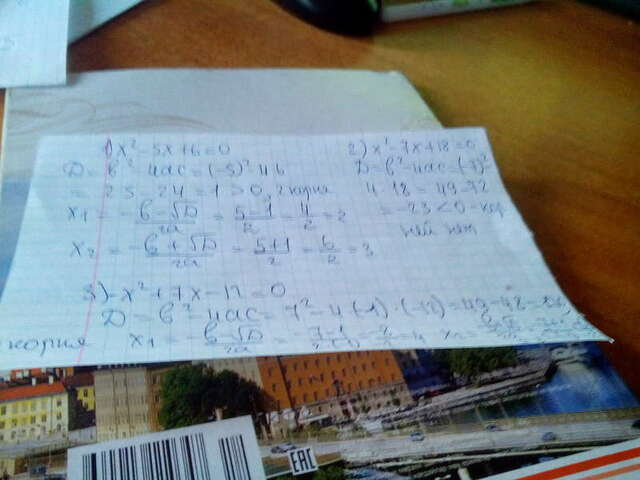 1) x² - 5x + 6 = 0
D = b² - 4ac = (-5)² - 4·6
= 25 - 24 = 1 > 0, 2 корня
x₁ = -b - √D / 2a = 5-1 / 2 = 4 / 2 = 2
x₂ = -b + √D / 2a = 5+1 / 2 = 6 / 2 = 3
2) x² - 7x + 18 = 0
D = b² - 4ac = (-7)² -
4·18 = 49 - 72
= -23 < 0 - кор
ней нет
3) -x² + 7x - 12 = 0
D = b² - 4ac = 7² - 4(-1)·(-12) = 49 - 48 =
корня x₁ = -b - √D / 2a = = 4 x₂ =
EAC